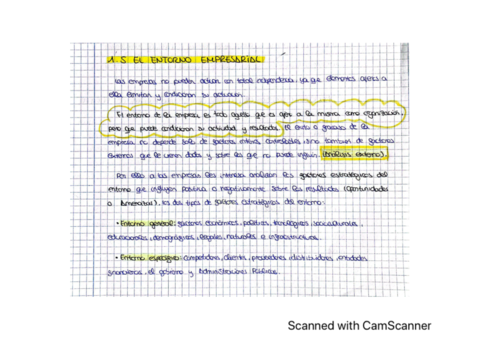 1.5 EL ENTORNO EMPRESARIAL
Las empresas no pueden actuar con total independencia, ya que elementos ajenos a
ella limitan y condicionan su actuación.
El entorno de la empresa es todo aquello que es ajeno a la misma como organización,
pero que puede condicionar su actividad y resultados. El éxito o fracaso de la
empresa no depende solo de factores internos controlables, sino también de factores
externos que le vienen dados y sobre los que no puede influir. (Análisis externo).
Por ello a las empresas les interesa analizar los factores estratégicos del
entorno que influyen positiva o negativamente sobre los resultados (Oportunidades
o Amenazas). Los dos tipos de factores estratégicos del entorno:
• Entorno general: factores económicos, políticos, tecnológicos, socioculturales,
educacionales, demográficos, legales, naturales e infraestructuras.
• Entorno específico: competidores, clientes, proveedores, distribuidores, entidades
financieras, el gobierno y Administraciones Públicas.
Scanned with CamScanner